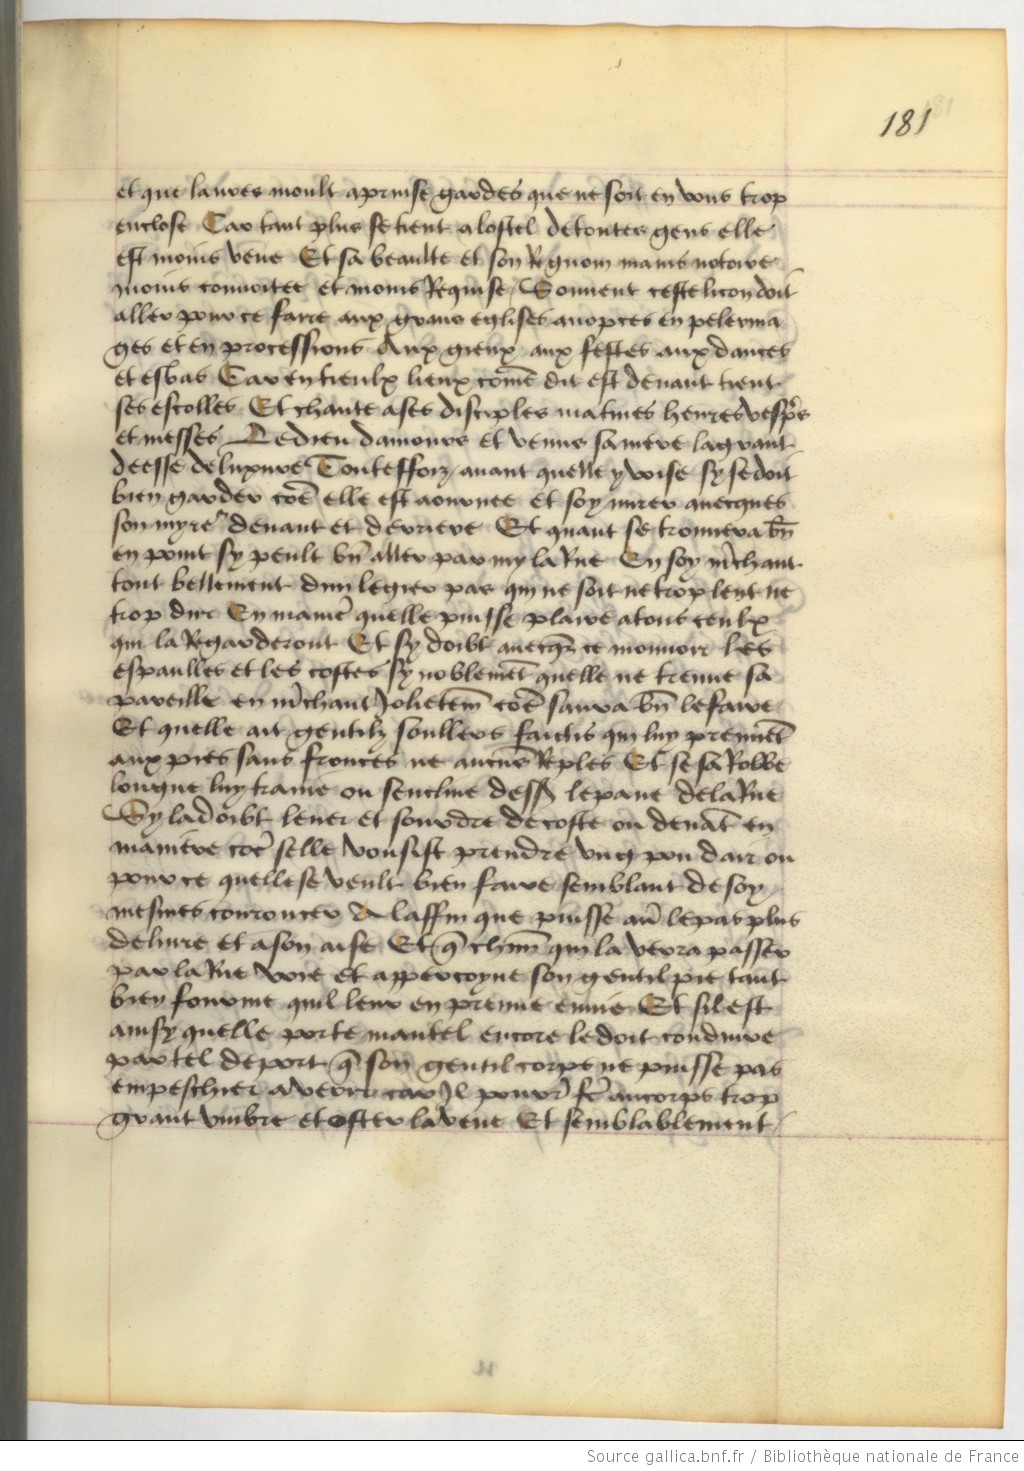 181
et que laures moult aprinse gardes que ne soit en vous trop
enclose Car tant plus se tient a lostel de toutes gens elle
est moins veue Et sa beaulte et son Regnom mains notoire
moins conuoitee et moins Requise Souuent ceste licon doit
aller pour ce faire aux grans eglises a nopces en pelerina
ges et en processions Aux gieux aux festes aux dances
et esbas Car en tieulx lieux come dit est deuant tient
ses escolles Et chante a ses disciples matines heures vespres
et messes Le dieu damours et venus sa mere la grant
deesse de luxure Touteffoiz auant quelle y voise sy se doit
bien garder coe elle est aournee et soy mirer auecques
son myre deuant et derriere Et quant se trouuera bn
en point sy peult bn aller par my la Rue En soy mchant
tout bellement dun legier pas qui ne soit ne trop lent ne
trop dur En manie quelle puisse plaire a tous ceulx
qui la Regarderont Et sy doibt auecqs ce mouuoir les
espaulles et les costes sy noblemet quelle ne treuue sa
pareille en mchant Jolietem coe saura bn le faire
Et quelle ait gentilz soullers faictis qui luy prennet
aux pies sans fronces ne aucus Reples Et se sa Robbe
longue luy traine ou sencline dess le paue de la Rue
Sy la doibt leuer et sourdre de coste ou deuat en
maniere coe selle vousist prendre vng pou dair ou
pour ce quelle se veult bien faire semblant de soy
mesmes couroucer A laffin que puisse au le pas plus
deliure et a son aise Et q chun qui la verra passer
par la Rue voie et appercoyue son gentil pie tant
bien fourme quil leur en prenne enuie Et sil est
ainsy quelle porte mantel encore le doit conduire
par tel deport q son gentil corps ne puisse pas
empeschier a veoir car Jl pourr fe au corps trop
grant vmbre et oster la veue Et semblablement
Source gallica.bnf.fr / Bibliothèque nationale de France